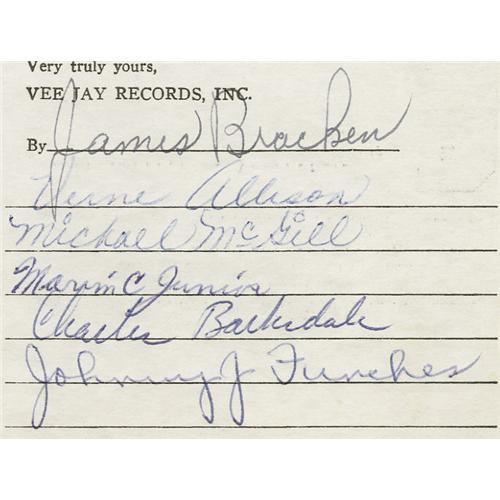 Very truly yours,
VEE JAY RECORDS, INC.
By James Bracken
Verne Allison
Michael McGill
Marvin C Junior
Charles Barksdale
Johnny J Funches